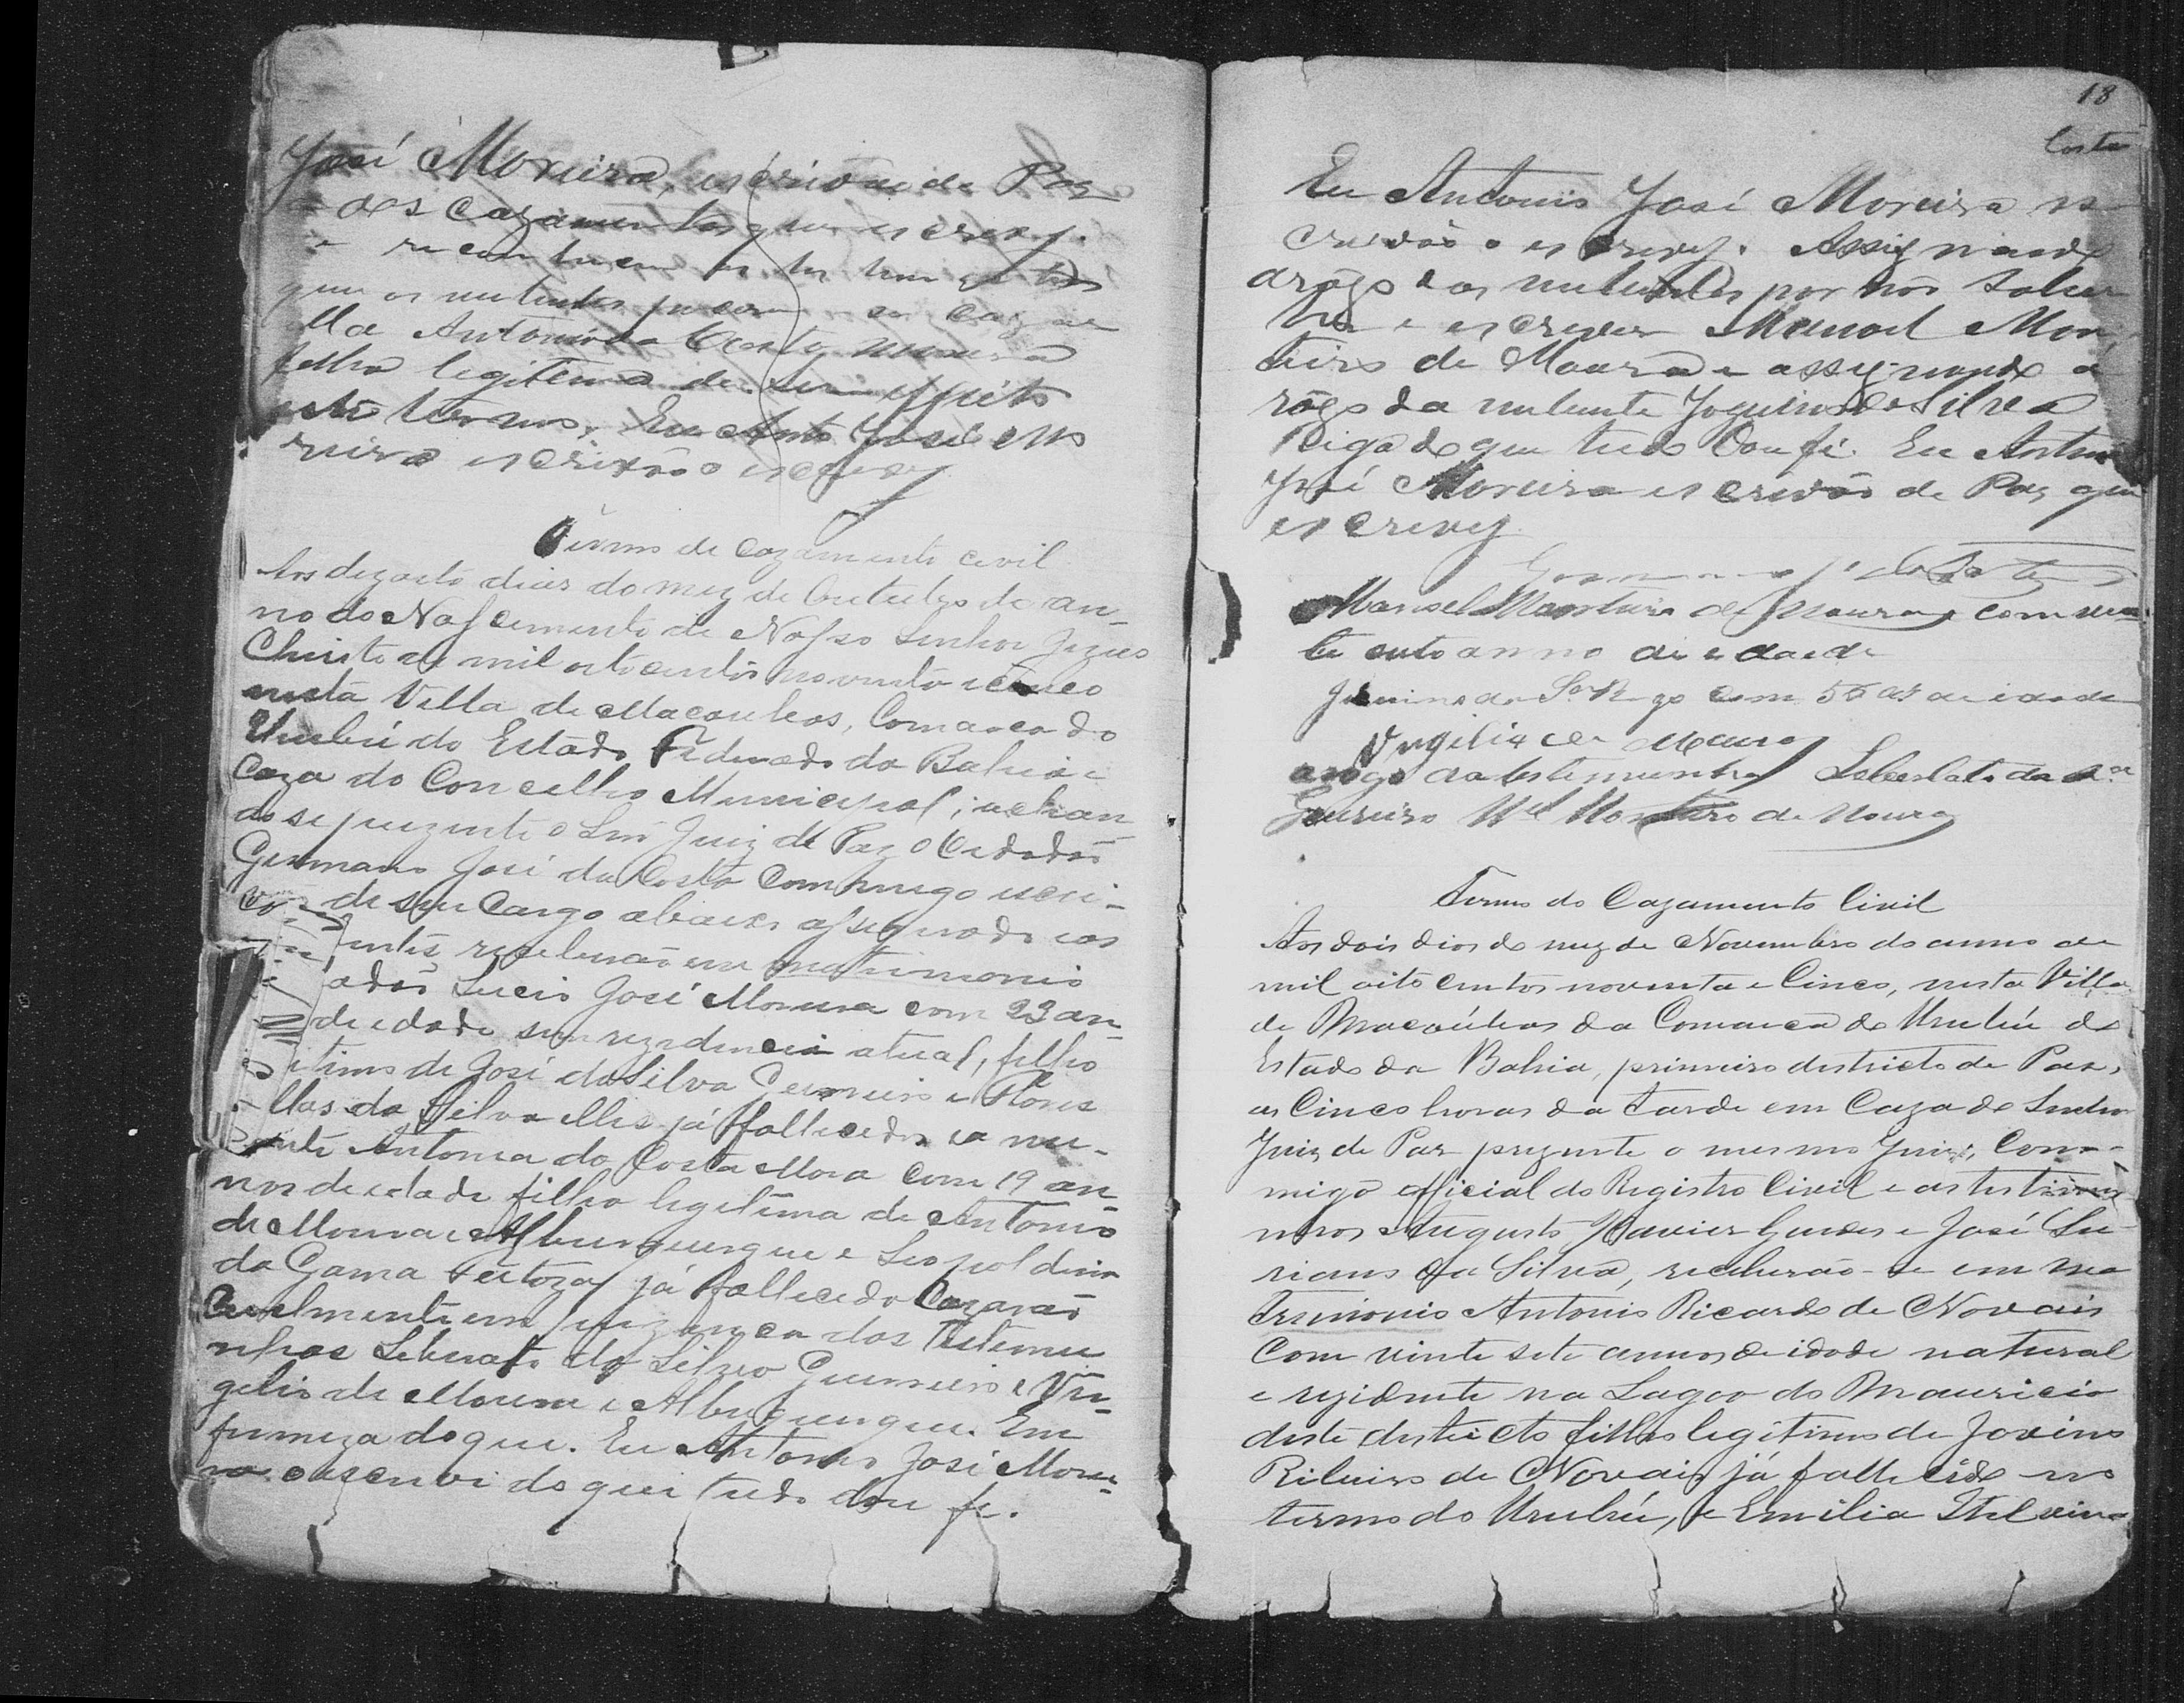 José Moreira, escrivão de Paz
e dos Cazamentos que escrevy.
que os nubentes
Antonio da Costa Moura
filha legitima de sem effeito
este termo, Eu Antº José Mo
reira escrivão o escrevy
Termo de Cazamento civil
Aos dezoito dias do mez de Outubro do an-
no do Nascimento de Nosso Senhor Jezus
Christo de mil oito centos noventa e cinco
nesta Villa de Macaubas, Comarca do
Urubú do Estado Federado da Bahia e
Caza do Concelho Municipal; achan
do se prezente o Snr Juiz de Paz o Cidadão
Germano José da Costa Commigo escri-
vão de seu Cargo abaixo assignado e os
receberão em matrimonio
Lucio José Moreira com 23 an-
de edade sua rezidencia atual, filho
itimo de José da Silva Guerreiro e Flores
da Silva elles já fallecidos e a nu-
bente Antonia da Costa Moura com 19 an-
nos de edade filha legitima de Antonio
de Moura e Alburquerque e Leopoldina
da Gama já fallecida Cazarão
Civilmente em prezença das Testemu
nhas Liberato da Silva Guerreiro e Vir-
gilio de Moura e Albuquerque. Em
firmeza do que. Eu Antonio José Morei-
ra o escrevi do que tudo dou fe.
18
Costa
Eu Antonio José Moreira es
crivão o escrevy. Assignando
arôgo dos nubentes por não saber
ler e escrever Manoel Mon
teiro de Moura e assignando a
rôgo da nubente Joquina da Silva
Rigo do que tudo Dou fé. Eu Antonio
José Moreira escrivão de Paz que
escrevy
Germano Jé da Costa
Manoel Monteiro de Moura com vin
te outo anno de edade
com 56 as de idade
Virgilio de Moura
arogo da testemunha Leberato da Sa
Gurreiro Mel Monteiro de Moura
Termo do Cazamento Civil
Aos dois dias do mez de Novembro do anno de
mil oito centos noventa e Cinco, nesta Villa
de Macaúbas da Comarca do Urubú do
Estado da Bahia, primeiro districto de Paz,
as Cinco horas da tarde em Caza do Senhor
Juiz de Paz prezente o mesmo Juiz, Com-
migo official do Registro Civil e as testimu-
nhas Augusto Xavier Guedes e José Lu
riano da Silva, receberão-se em ma
trimonio Antonio Ricardo de Novais
Com vinte sete annos de idade natural
e rezidente na Lagoa do Mauricio
deste destricto filho legitimo de Jovino
Ribeiro de Novais já fallecido no
termo do Urubú, e Emilia Etelvina